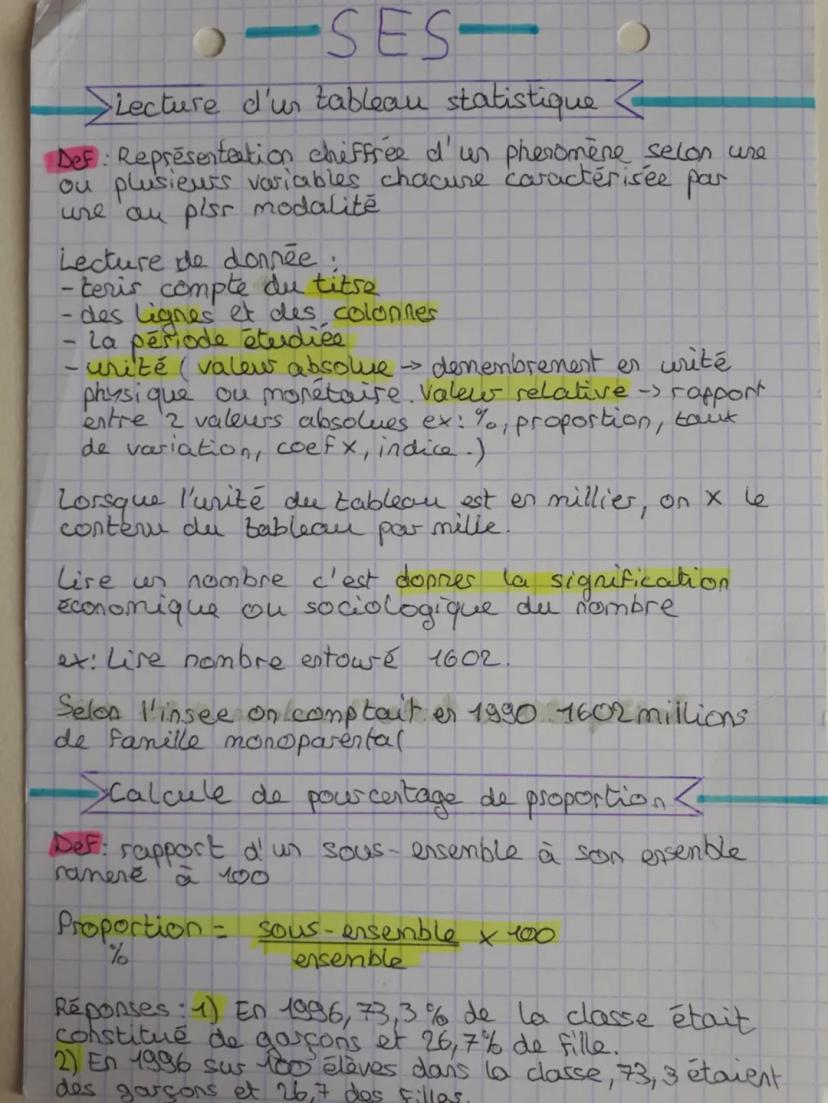 SES
Lecture d'un tableau statistique
Def : Représentation chiffrée d'un phenomène selon une
ou plusieurs variables chacune caractérisée par
une ou plsr modalité
Lecture de donnée :
- tenir compte du titre
- des lignes et des colonnes
- La période étudiée
- unité ( valeur absolue → denembrement en unité
physique ou monétaire. Valeur relative → rapport
entre 2 valeurs absolues ex: %, proportion, taux
de variation, coef x, indice.)
Lorsque l'unité du tableau est en millier, on x le
contenu du tableau par mille.
Lire un nombre c'est donner la signification
économique ou sociologique du nombre
ex: Lire nombre entouré 1602.
Selon l'insee on comptait en 1990 1602 millions
de famille monoparental
Calcule de pourcentage de proportion
Def: rapport d'un sous-ensemble à son ensemble
ramené à 100
Proportion = sous-ensemble x 100
% ensemble
Réponses : 1) En 1996, 73,3 % de la classe était
constitué de garçons et 26,7% de fille.
2) En 1996 sur 100 élèves dans la classe, 73,3 étaient
des garçons et 26,7 des filles.